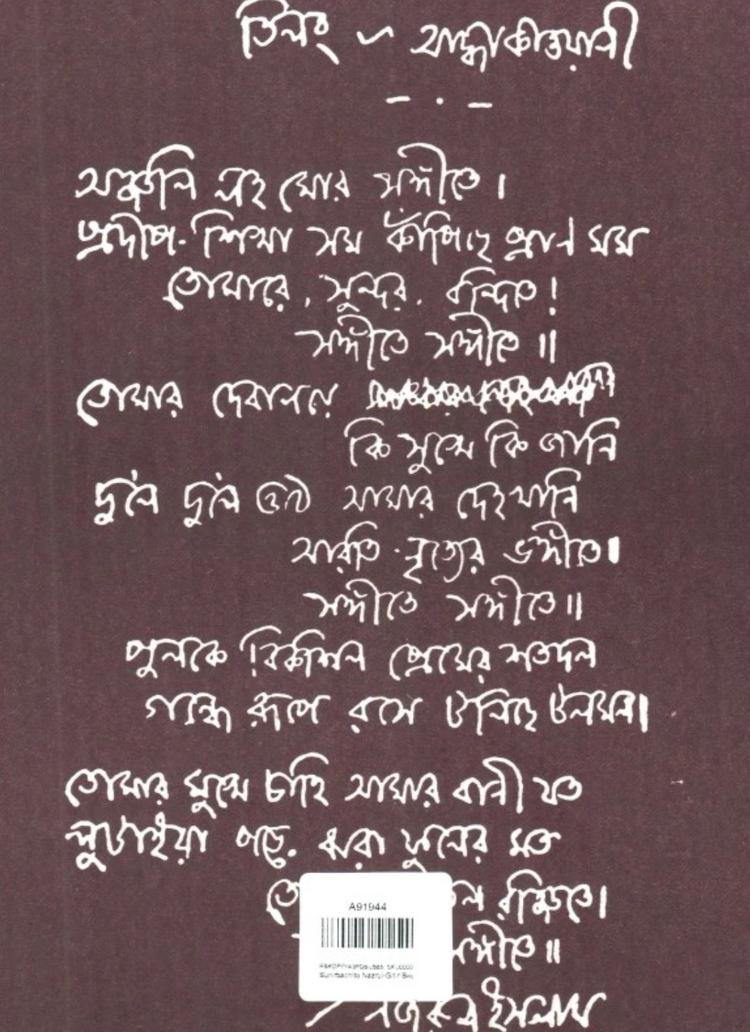 তিলং ~ আদ্ধাকাওয়ালী
— · —
অঞ্জলি লহ মোর সঙ্গীতে।
প্রদীপ-শিখা সম কাঁপিছে প্রাণ মম
তোমারে, সুন্দর, বন্দিতে!
সঙ্গীতে সঙ্গীতে॥
তোমার দেবালয়ে
কি সুখে কি জানি
দুলে দুলে ওঠে আমার দেহখানি
আরতি-নৃত্যের ভঙ্গীতে।
সঙ্গীতে সঙ্গীতে॥
পুলকে বিকশিল প্রেমের শতদল
গন্ধে রূপে রসে টলিছে টলমল।
তোমার মুখে চাহি আমার বাণী যত
লুটাইয়া পড়ে ঝরা ফুলের মত
রঞ্জিতে।
A91944
নজরুল ইসলাম